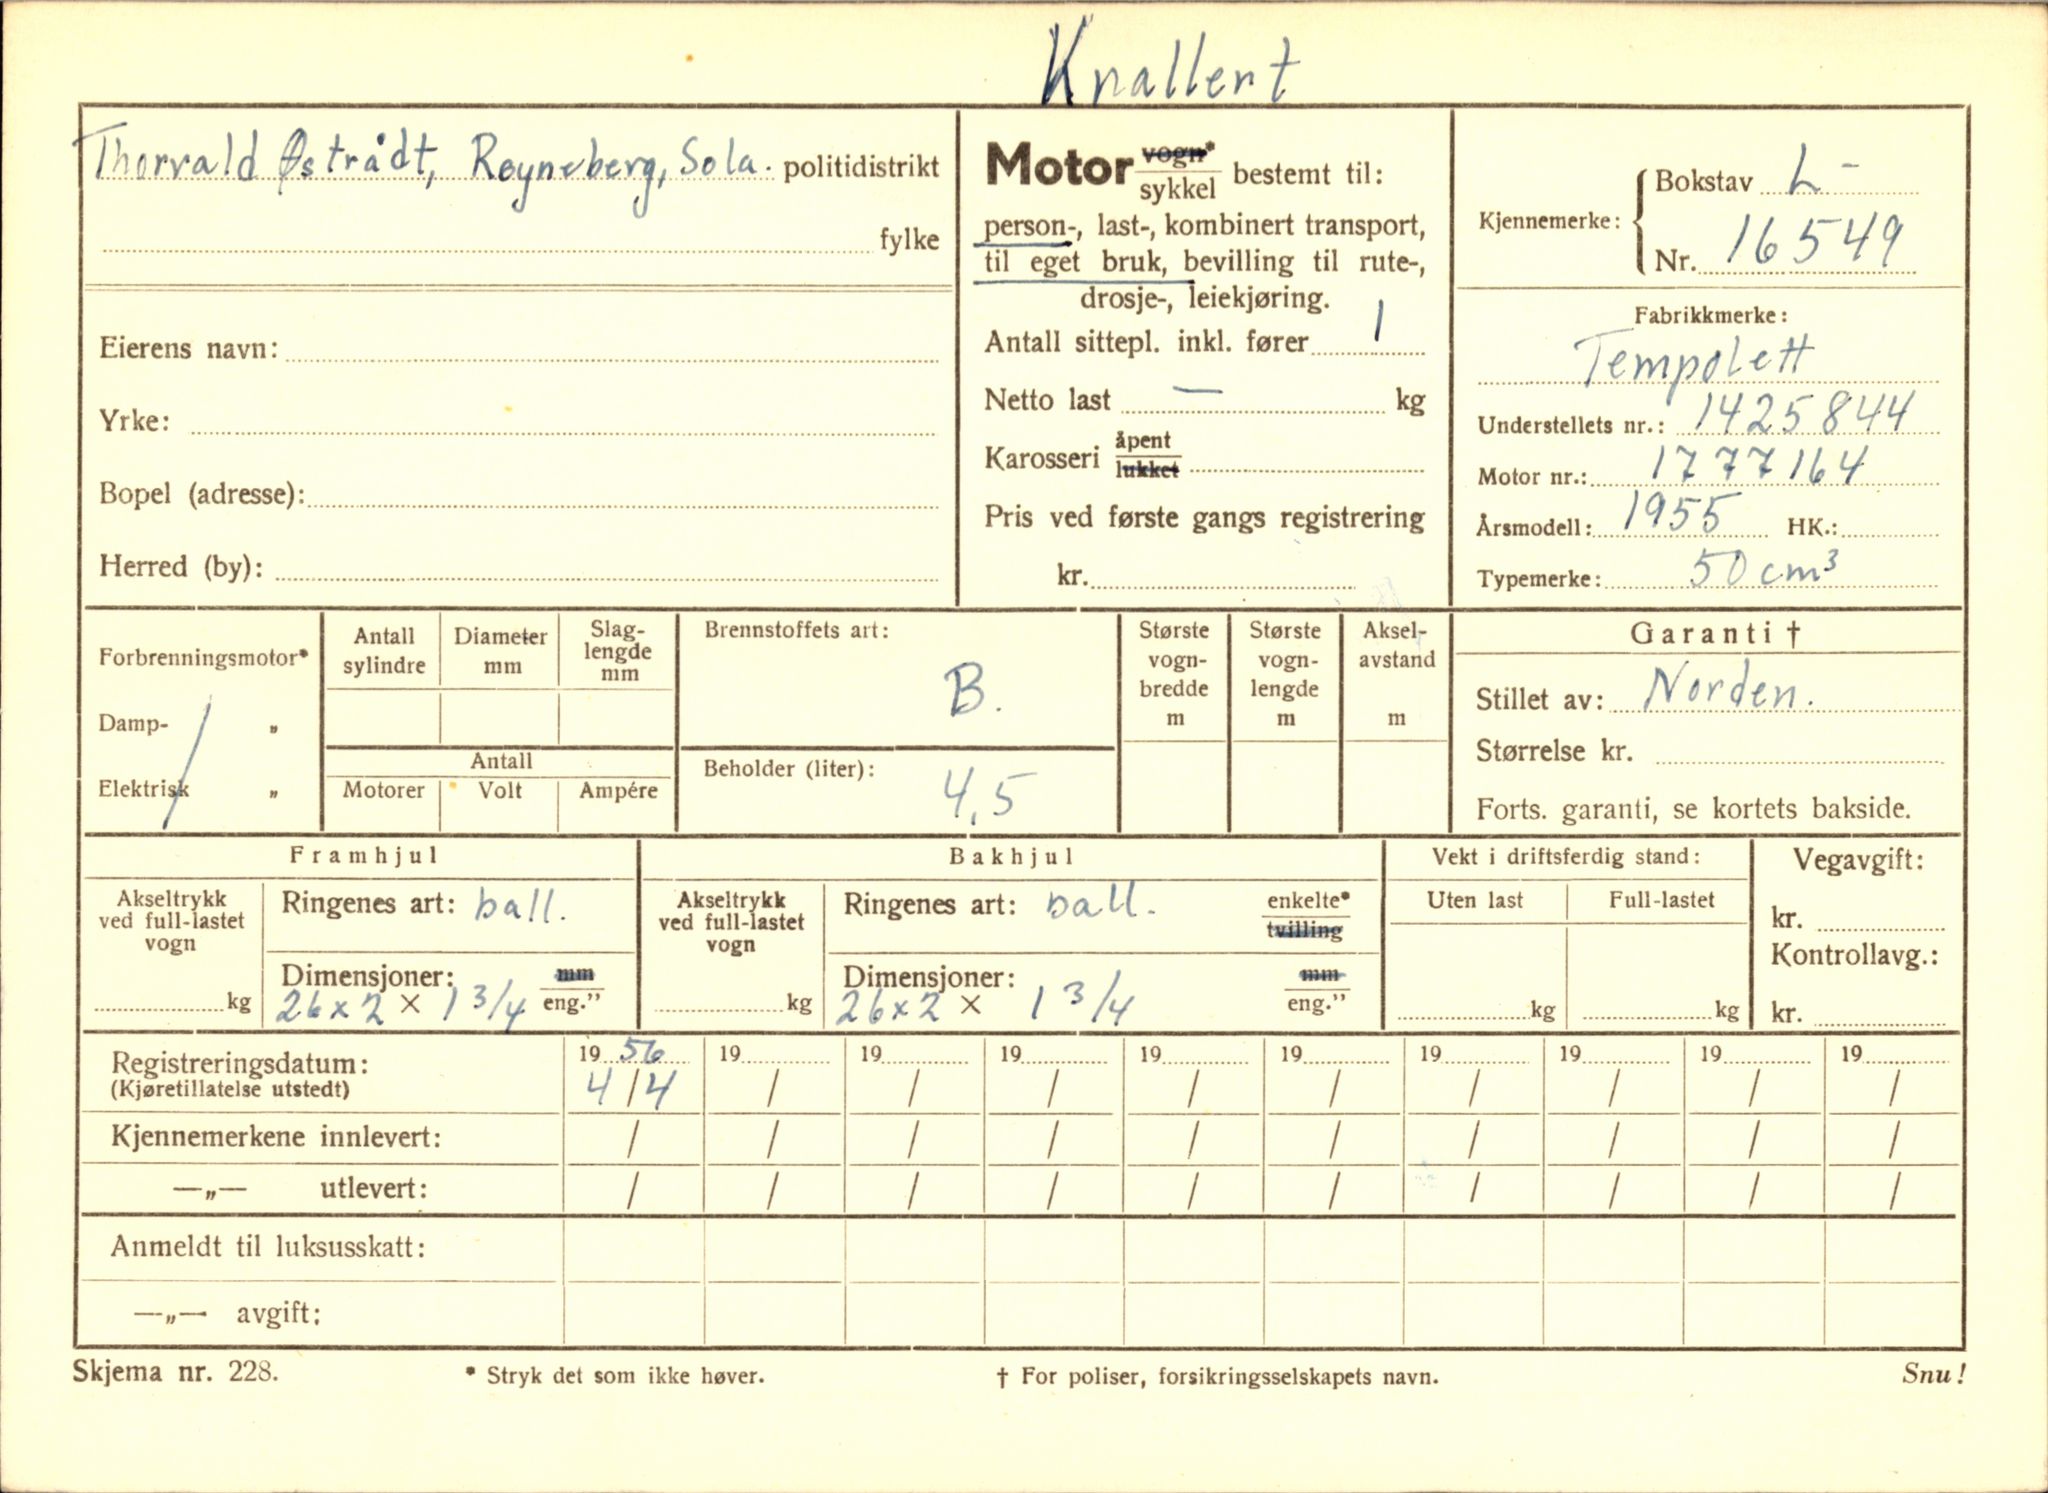 Knallert
Thorvald Østrådt, Røyneberg, Sola. politidistrikt
fylke
Eierens navn:
Yrke:
Bopel (adresse):
Herred (by):
Motor vogn* / sykkel bestemt til:
person-, last-, kombinert transport,
til eget bruk, bevilling til rute-,
drosje-, leiekjøring.
Antall sittepl. inkl. fører 1
Netto last — kg
Karosseri åpent / lukket
Pris ved første gangs registrering
kr.
Kjennemerke: Bokstav L-
Nr. 16549
Fabrikkmerke:
Tempolett
Understellets nr.: 1425844
Motor nr.: 1777164
Årsmodell: 1955 HK.:
Typemerke: 50 cm³
Forbrenningsmotor*
Damp- „
Elektrisk „
Antall sylindre
Diameter mm
Slag-lengde mm
Antall
Motorer Volt Ampére
Brennstoffets art:
B.
Beholder (liter):
4,5
Største vogn-bredde m
Største vogn-lengde m
Aksel-avstand m
Garanti †
Stillet av: Norden.
Størrelse kr.
Forts. garanti, se kortets bakside.
Framhjul
Akseltrykk ved full-lastet vogn
kg
Ringenes art: ball.
Dimensjoner: mm / eng.”
26x2 × 1 3/4
Bakhjul
Akseltrykk ved full-lastet vogn
kg
Ringenes art: ball. enkelte* / tvilling
Dimensjoner: mm / eng.”
26x2 × 1 3/4
Vekt i driftsferdig stand:
Uten last Full-lastet
kg kg
Vegavgift:
kr.
Kontrollavg.:
kr.
Registreringsdatum: 19 56 19 19 19 19 19 19 19 19 19
(Kjøretillatelse utstedt) 4/4 / / / / / / / / /
Kjennemerkene innlevert: / / / / / / / / / /
—„— utlevert: / / / / / / / / / /
Anmeldt til luksusskatt:
—„— avgift:
Skjema nr. 228. * Stryk det som ikke høver. † For poliser, forsikringsselskapets navn. Snu!